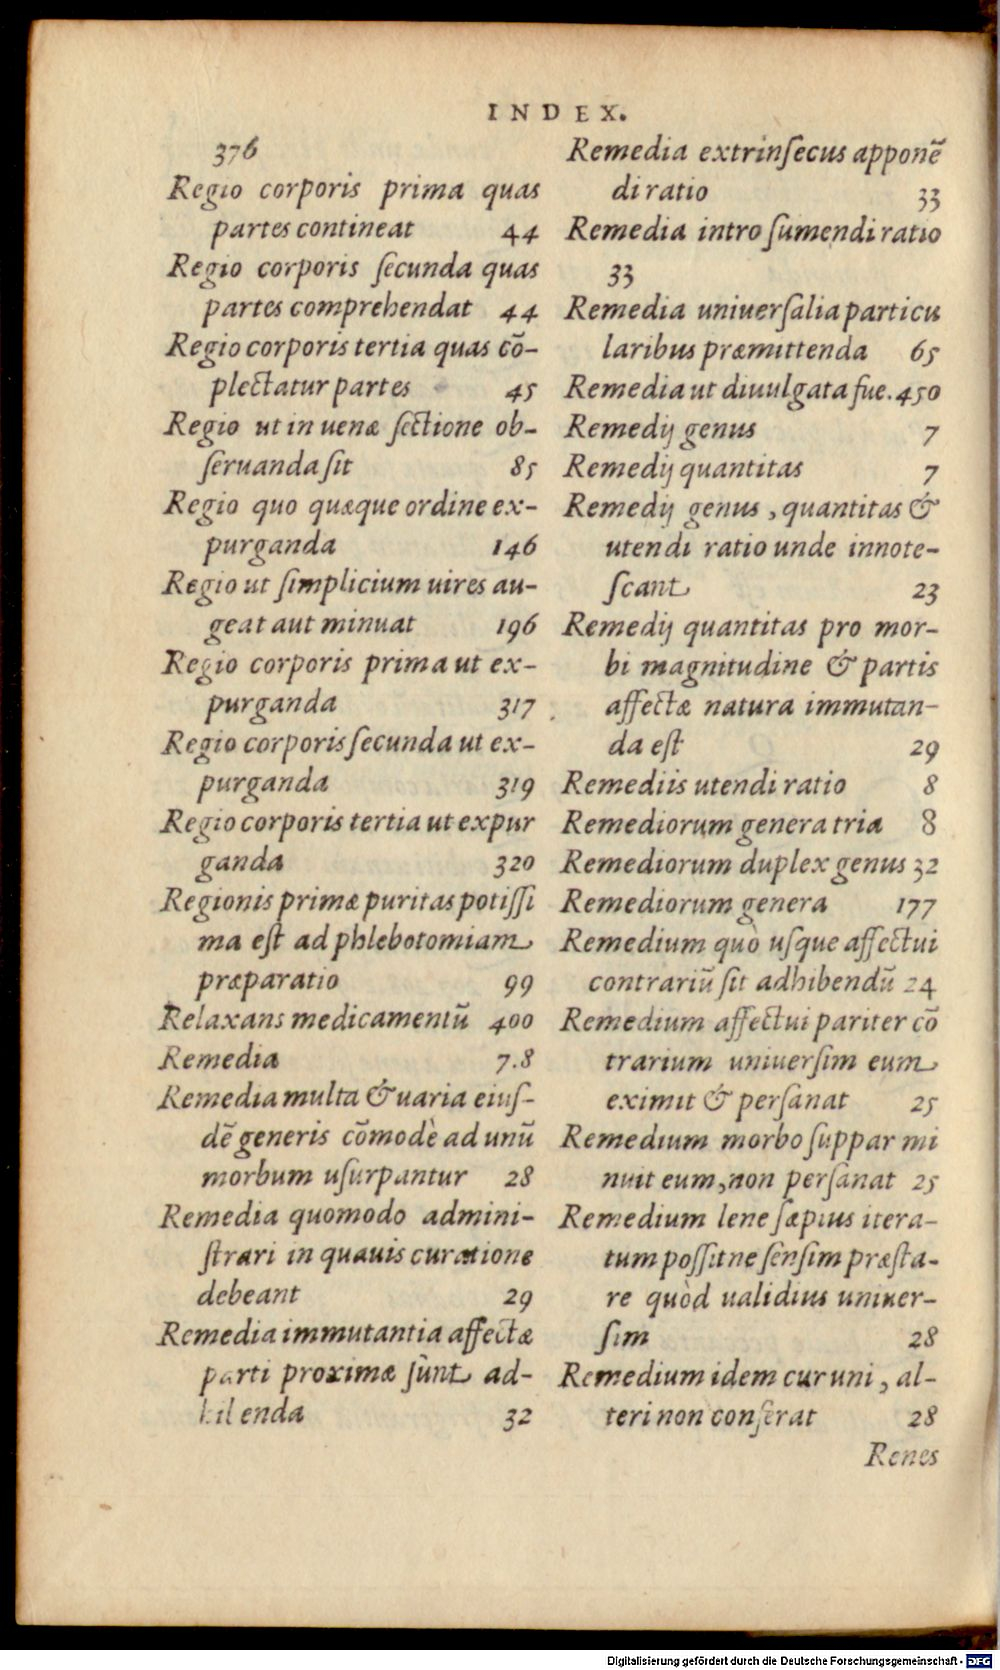 INDEX.
376
Regio corporis prima quas
partes contineat 44
Regio corporis ſecunda quas
partes comprehendat 44
Regio corporis tertia quas cō-
plectatur partes 45
Regio ut in uenæ ſectione ob-
ſeruanda ſit 85
Regio quo quæque ordine ex-
purganda 146
Regio ut ſimplicium uires au-
geat aut minuat 196
Regio corporis prima ut ex-
purganda 317
Regio corporis ſecunda ut ex-
purganda 319
Regio corporis tertia ut expur
ganda 320
Regionis primæ puritas potiſſi
ma eſt ad phlebotomiam
præparatio 99
Relaxans medicamentū 400
Remedia 7.8
Remedia multa & uaria eiuſ-
dē generis cōmodè ad unū
morbum uſurpantur 28
Remedia quomodo admini-
ſtrari in quauis curatione
debeant 29
Remedia immutantia affectæ
parti proximæ ſunt ad-
enda 32
Remedia extrinſecus apponē
di ratio 33
Remedia intro ſumendi ratio
33
Remedia uniuerſalia particu
laribus præmittenda 65
Remedia ut diuulgata fue. 450
Remedij genus 7
Remedij quantitas 7
Remedij genus, quantitas &
utendi ratio unde innote-
ſcant 23
Remedij quantitas pro mor-
bi magnitudine & partis
affectæ natura immutan-
da eſt 29
Remediis utendi ratio 8
Remediorum genera tria 8
Remediorum duplex genus 32
Remediorum genera 177
Remedium quò uſque affectui
contrariū ſit adhibendū 24
Remedium affectui pariter cō
trarium uniuerſim eum
eximit & perſanat 25
Remedium morbo ſuppar mi
nuit eum, non perſanat 25
Remedium lene ſæpius itera-
tum poſſitne ſenſim præſta-
re quòd ualidius uniuer-
ſim 28
Remedium idem cur uni, al-
teri non conferat 28
Renes
Digitalisierung gefördert durch die Deutsche Forschungsgemeinschaft - DFG